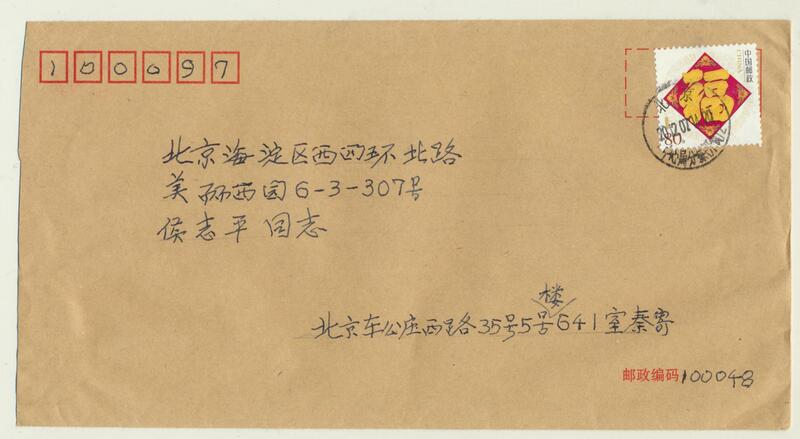 100097
中国邮政
CHINA
福
80分
北京
北京海淀区西四环北路
美丽西园6-3-307号
侯志平同志
楼
北京车公庄西路35号5号641室秦寄
邮政编码100048